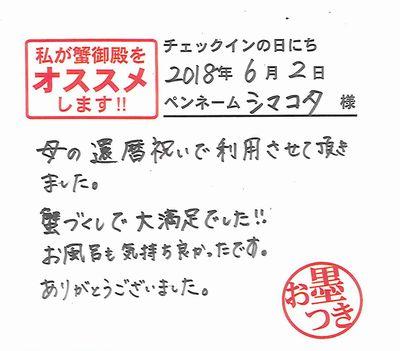 私が蟹御殿を
オススメ
します!!
チェックインの日にち
2018年6月2日
ペンネーム シマコタ 様
母の還暦祝いで利用させて頂き
ました。
蟹づくしで大満足でした!!
お風呂も気持ち良かったです。
ありがとうございました。
お墨つき